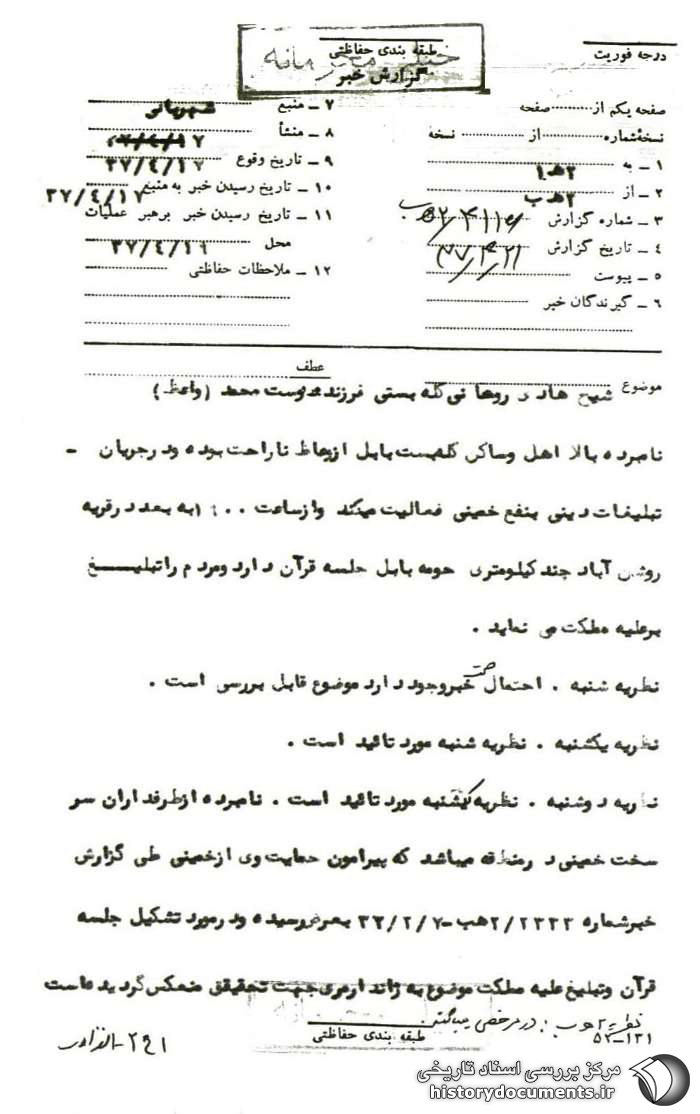 درجه فوریت
طبقه بندی حفاظتی
خیلی محرمانه
گزارش خبر
صفحه یکم از ........ صفحه
نسخهٔ شماره ........ از ........ نسخه
۱ ـ به ۲ هـ ۱
۲ ـ از ۲ هـ ب
۳ ـ شماره گزارش
۴ ـ تاریخ گزارش
۵ ـ پیوست
۶ ـ گیرندگان خبر
۷ ـ منبع شهربانی
۸ ـ منشأ
۹ ـ تاریخ وقوع ۳۷/۴/۱۷
۱۰ ـ تاریخ رسیدن خبر به منبع ۳۷/۴/۱۷
۱۱ ـ تاریخ رسیدن خبر برهبر عملیات
محل ۳۷/۴/۱۹
۱۲ ـ ملاحظات حفاظتی
عطف
موضوع شیخ هادی روحانی کله بستی فرزند دوست محمد (واعظ)
نامبرده بالا اهل وساکن کله بست بابل ازوعاظ ناراحت بوده ودرجریان -
تبلیغات دینی بنفع خمینی فعالیت میکند وازساعت ۱۰۰۰ به بعد درقریه
روشن آباد چند کیلومتری حومه بابل جلسه قرآن دارد ومردم راتبلیــــغ
برعلیه مملکت می نماید .
نظریه شنبه . احتمال صحت خبروجود دارد موضوع قابل بررسی است .
نظریه یکشنبه . نظریه شنبه مورد تائید است .
نظریه دوشنبه . نظریه یکشنبه مورد تائید است . نامبرده ازطرفداران سر
سخت خمینی درمنطقه میباشد که پیرامون حمایت وی ازخمینی طی گزارش
خبرشماره ۲/۲۳۳۳هـب-۳۷/۲/۷ بعرض رسیده ودرمورد تشکیل جلسه
قرآن وتبلیغ علیه مملکت موضوع به ژاندارمری جهت تحقیق منعکس گردیده است
نظریه ۲ هـ ب : در مرخصی میباشد
طبقه بندی حفاظتی
۵۲-۱۳۱
مرکز بررسی اسناد تاریخی
historydocuments.ir